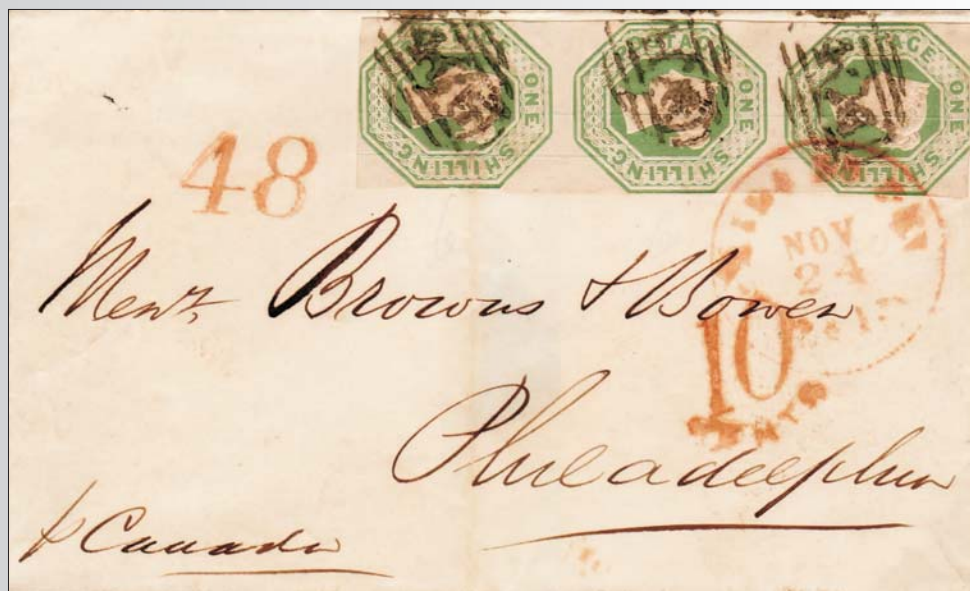 POSTAGE ONE SHILLING
POSTAGE ONE SHILLING
POSTAGE ONE SHILLING
48
NOV
24
10
CENTS
Messrs Browns & Bowen
Philadelphia
p Canada